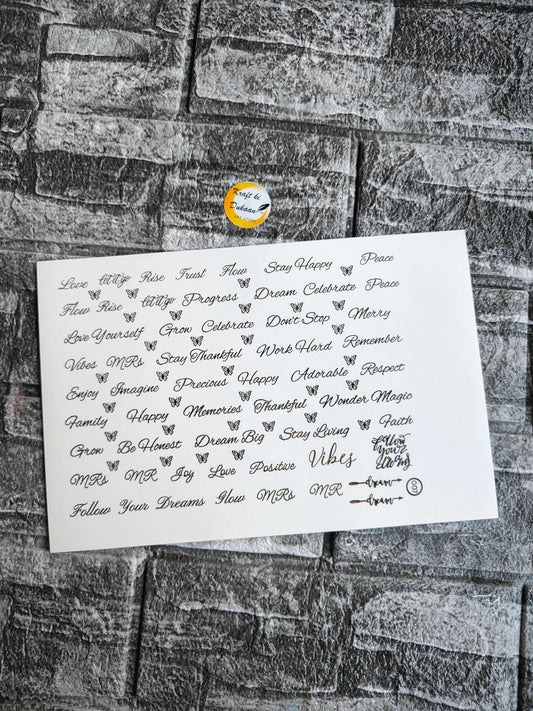 Kraft ki
Dukaan
Love let it go Rise Trust Flow Stay Happy Peace
Flow Rise let it go Progress Dream Celebrate Peace
Love Yourself Grow Celebrate Don't Stop Merry
Vibes MRs Stay Thankful Work Hard Remember
Enjoy Imagine Precious Happy Adorable Respect
Family Happy Memories Thankful Wonder Magic
Grow Be Honest Dream Big Stay Living Faith
MRs MR Joy Love Positive Vibes
follow
your
dream
Follow Your Dreams Glow MRs MR dream
dream